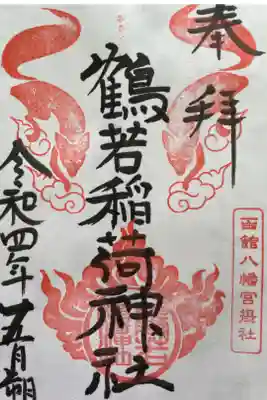 奉拝
函館八幡宮摂社
鶴若稲荷神社
令和四年五月朔